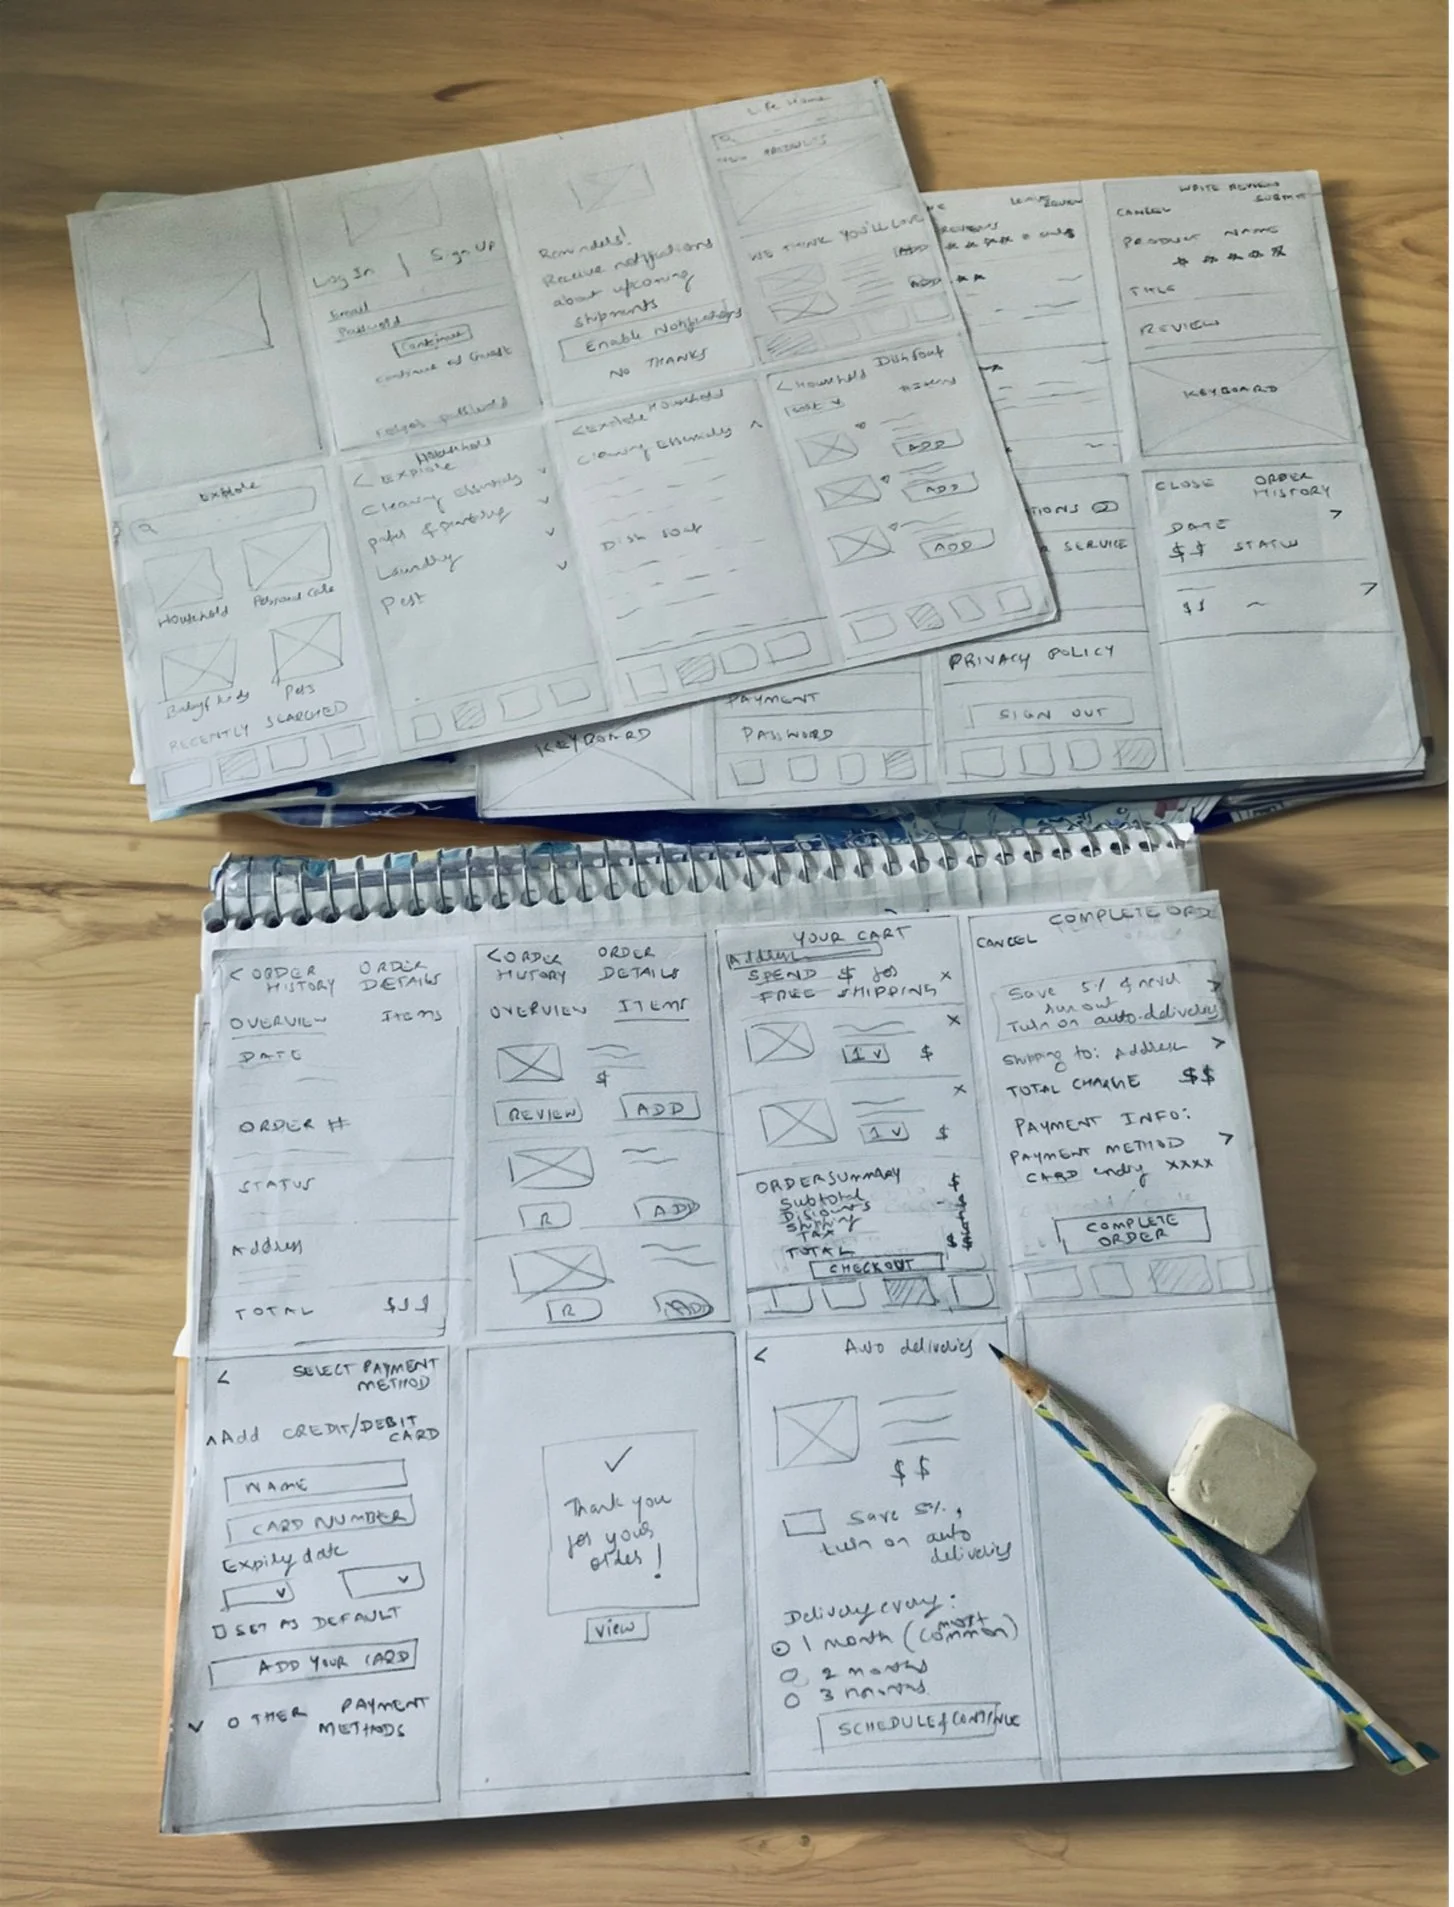 Log In | Sign Up
Email
Password
Continue
Continue as Guest
Forgot password
Reminders!
Receive notifications
about upcoming
shipments
Enable Notifications
NO THANKS
Life Home
WE THINK YOU'LL LOVE
ADD
ADD
Explore
Household
Personal Care
Baby & kids
Pets
RECENTLY SEARCHED
< Explore
Household
Cleaning Essentials
Laundry
Pest
< Explore Household
Cleaning Essentials
Dish soap
< Household Dish Soap
# Items
ADD
ADD
ADD
REVIEWS
WRITE REVIEW
CANCEL
SUBMIT
PRODUCT NAME
TITLE
REVIEW
KEYBOARD
TIONS
SERVICE
PRIVACY POLICY
SIGN OUT
CLOSE ORDER
HISTORY
DATE >
$$ STATUS
>
$$
KEYBOARD
PAYMENT
PASSWORD
< ORDER ORDER
HISTORY DETAILS
OVERVIEW ITEMS
DATE
ORDER #
STATUS
Address
TOTAL $$$
< ORDER ORDER
HISTORY DETAILS
OVERVIEW ITEMS
$
REVIEW ADD
R ADD
R ADD
YOUR CART
Address
SPEND $ for X
FREE SHIPPING
X
1 v $
X
1 v $
ORDER SUMMARY
Subtotal $
Discounts
Shipping
TAX
TOTAL $
CHECKOUT
COMPLETE ORDE
CANCEL
Save 5% & never >
run out
Turn on auto-deliveries
Shipping to: Address >
TOTAL CHARGE $$
PAYMENT INFO:
PAYMENT METHOD >
CARD ending XXXX
COMPLETE
ORDER
< SELECT PAYMENT
METHOD
^ Add CREDIT/DEBIT
CARD
NAME
CARD NUMBER
Expiry date
v v
SET AS DEFAULT
ADD YOUR CARD
v OTHER PAYMENT
METHODS
Thank you
for your
order!
View
< Auto deliveries
$$
Save 5%,
turn on auto
deliveries
Delivery every:
1 month (most
common)
2 months
3 months
SCHEDULE & CONTINUE